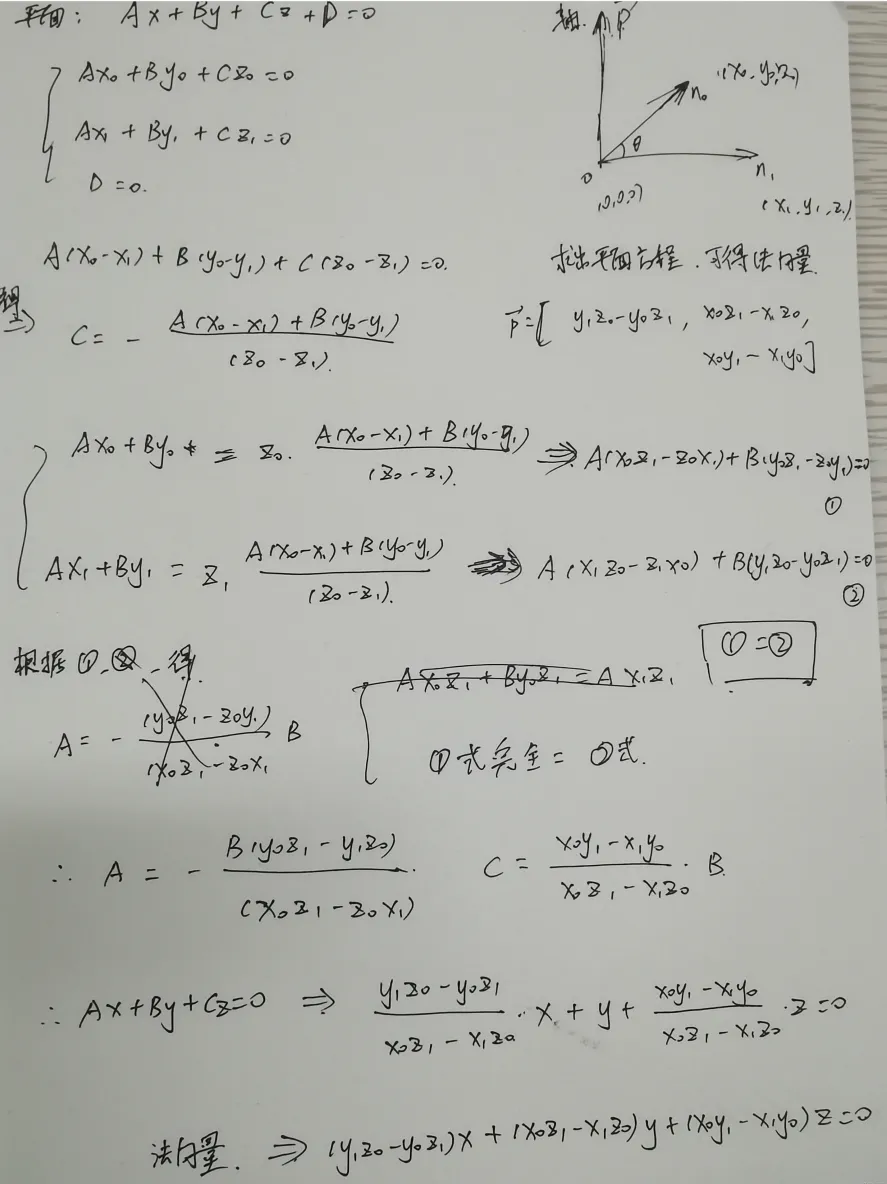 平面: Ax + By + Cz + D = 0
Ax₀ + By₀ + Cz₀ = 0
Ax₁ + By₁ + Cz₁ = 0
D = 0.
轴. P
n₀ (x₀, y₀, z₀)
θ
0 n₁
(0,0,0) (x₁, y₁, z₁)
A(x₀-x₁) + B(y₀-y₁) + C(z₀-z₁) = 0.
求出平面方程. 可得法向量.
⇒ C = - (A(x₀-x₁) + B(y₀-y₁)) / (z₀-z₁).
P⃗ = [ y₁z₀-y₀z₁ , x₀z₁-x₁z₀,
x₀y₁ - x₁y₀]
Ax₀ + By₀ = z₀. (A(x₀-x₁) + B(y₀-y₁)) / (z₀-z₁). ⇒ A(x₀z₁-z₀x₁) + B(y₀z₁-z₀y₁) = 0
①
Ax₁ + By₁ = z₁ (A(x₀-x₁) + B(y₀-y₁)) / (z₀-z₁). ⇒ A(x₁z₀-z₁x₀) + B(y₁z₀-y₀z₁) = 0
②
根据 ①、②、得
Ax₀z₁ + By₀z₁ = Ax₁z₁
① = ②
A = - (y₀z₁-z₀y₁) / (x₀z₁-z₀x₁) B
①式完全 = ②式.
∴ A = - B(y₀z₁-y₁z₀) / (x₀z₁-z₀x₁). C = (x₀y₁-x₁y₀) / (x₀z₁-x₁z₀) · B.
∴ Ax + By + Cz = 0 ⇒ (y₁z₀-y₀z₁) / (x₀z₁-x₁z₀) · x + y + (x₀y₁-x₁y₀) / (x₀z₁-x₁z₀) · z = 0
法向量. ⇒ (y₁z₀-y₀z₁)x + (x₀z₁-x₁z₀)y + (x₀y₁-x₁y₀)z = 0